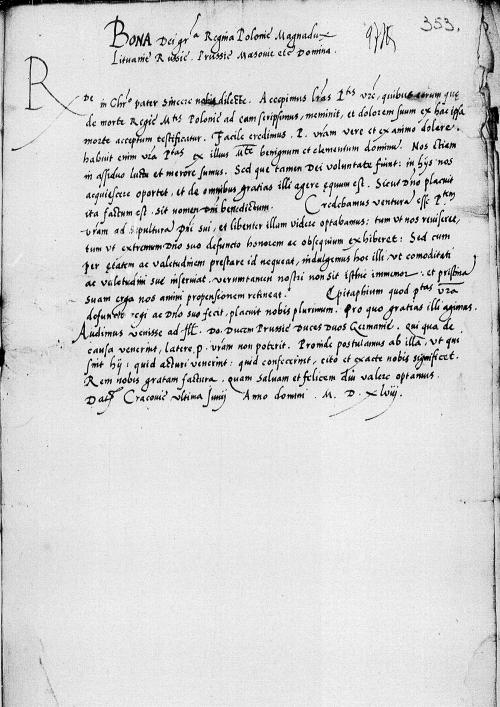 353.
BONA Dei grᵃ Regina Polonie Magnadux
Lituanie Russie Prussie Masovie etc Domina.
Rde in Chrº pater sincere nobis dilecte. Accepimus lras Ptis vre, quibus earum que
de morte Regie Mtis Polonie ad eam scripsimus, meminit, et dolorem suum ex hac ipsa
morte acceptum testificatur. Facile credimus P. vram vere et ex animo dolere.
habuit enim vra Ptas ex illius Mte benignum et clementem dominu. Nos etiam
in assiduo luctu et merore sumus. Sed que tamen Dei voluntate fiunt: in hijs nos
acquiescere oportet, et de omnibus gratias illi agere equum est. Sicut Dno placuit
ita factum est, sit nomen Dni benedictum. Credebamus ventura esse Ptem
vram ad sepultura Dni sui, et libenter illam videre optabamus: tum ut nos reviseret,
tum ut extremum Dno suo defuncto honorem ac obsequium exhiberet: Sed cum
per etatem ac valetudinem prestare id nequeat, indulgemus hoc illi, ut comoditati
ac valetudini sue inserviat. verumtamen nostri non sit isthic immemor, et pristina
suam erga nos animi propensionem retineat. Epitaphium quod ptas vra
defuncto regi ac Dno suo fecit, placuit nobis plurimum. Pro quo gratias illi agimus.
Audimus venisse ad Ill. Do. Ducem Prussie Duces Duos Germanie. qui qua de
causa venerint, latere p. vram non poterit. Proinde postulamus ab illa, ut qui
sint hij, quid acturi venerint: quid confecerint, cito et exacte nobis significet.
Rem nobis gratam factura, quam salvam et felicem diu valere optamus.
Dat Cracovie ultima Junij Anno domini M. D. xlviij.